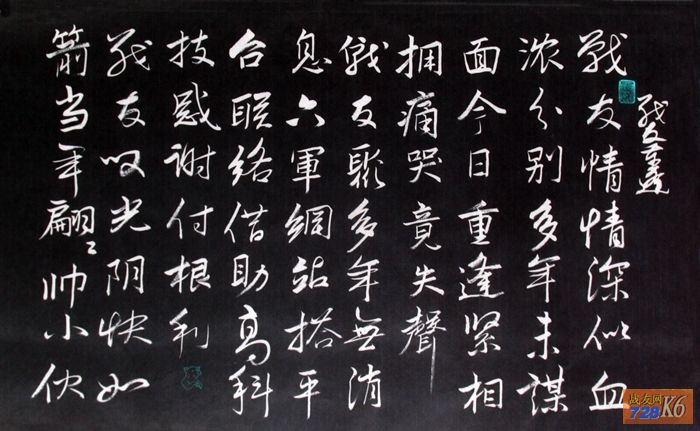 战友重逢
戰友情情深似血
浓分别多年未謀
面今日重逢緊相
拥痛哭竟失聲
戰友聚多年無消
息六軍網站搭平
台联络借助高科
技感谢付根利
战友叹光阴快如
箭当年翩々帅小伙
战友网
728K6